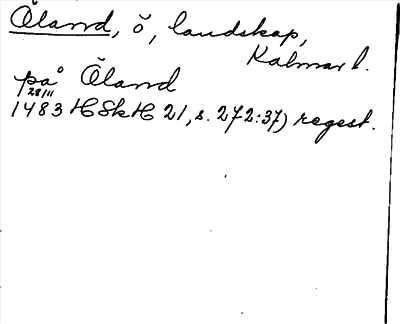 Öland, ö, landskap,
Kalmar l.
på Öland
28/11
1483 HSkH 21, s. 272:37) regest.